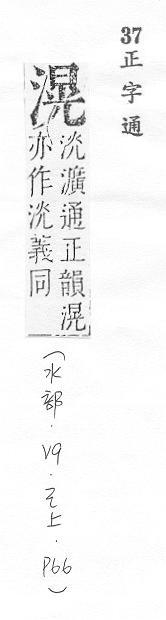 37正字通
滉
洸瀇通正韻滉
亦作洸義同
(水部.V9.巳上.P66)